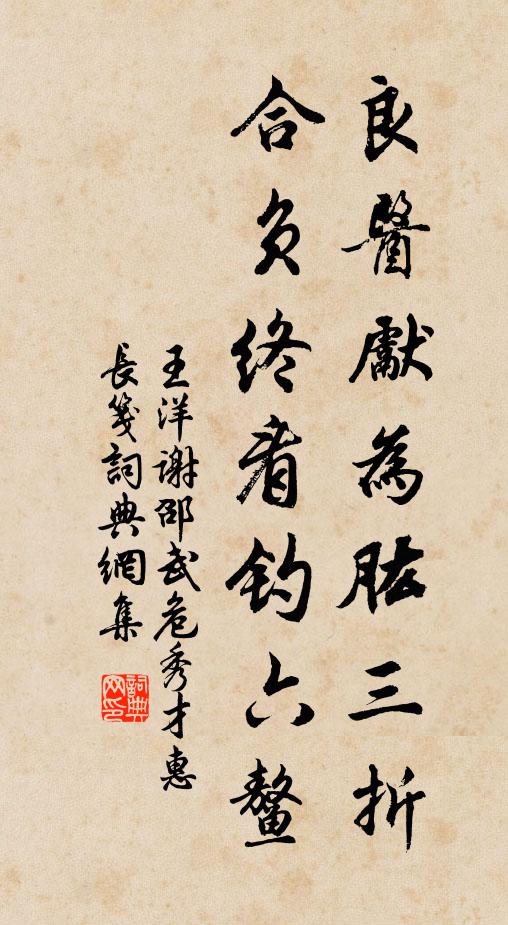 良醫厭為肱三折
合負終看釣六鼇
王洋謝邵武危秀才惠
長箋詞典網集
詞典網印